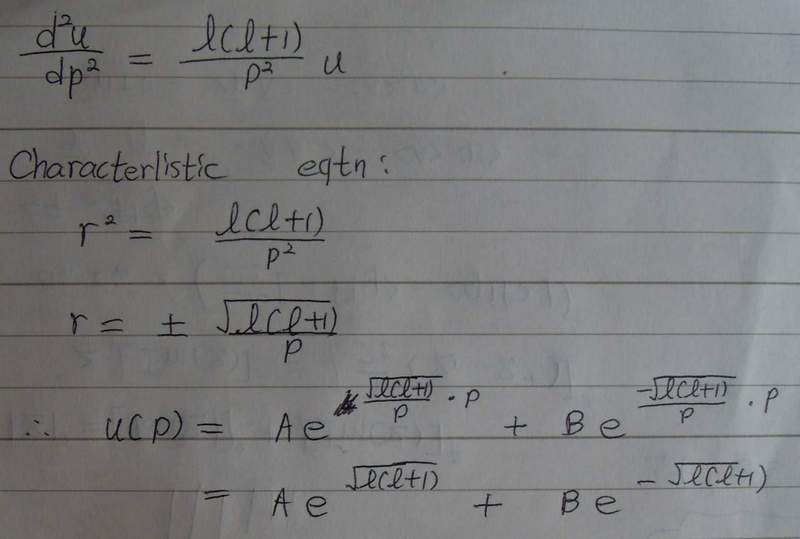 d²u/dp² = l(l+1)/p² u
Characterlistic eqtn:
r² = l(l+1)/p²
r = ± √l(l+1)/p
∴ u(p) = A e^(√l(l+1)/p · p) + B e^(-√l(l+1)/p · p)
= A e^(√l(l+1)) + B e^(-√l(l+1))